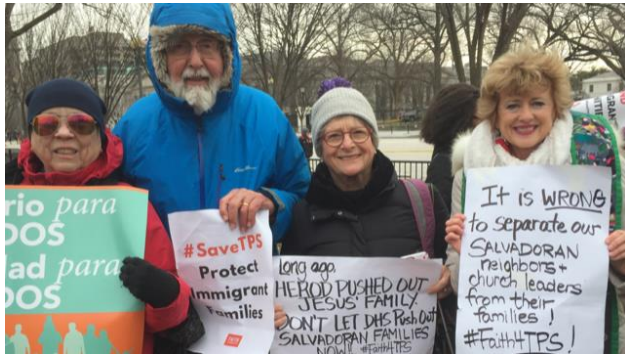 rio para
DOS
dad para
DOS
#SaveTPS
Protect
Immigrant
Families
Long ago,
HEROD PUSHED OUT
JESUS' FAMILY.
DON'T LET DHS PUSH OUT
SALVADORAN FAMILIES
NOW! #Faith4TPS
IT is WRONG
to separate our
SALVADORAN
neighbors +
church leaders
from their
families!
#Faith4TPS!